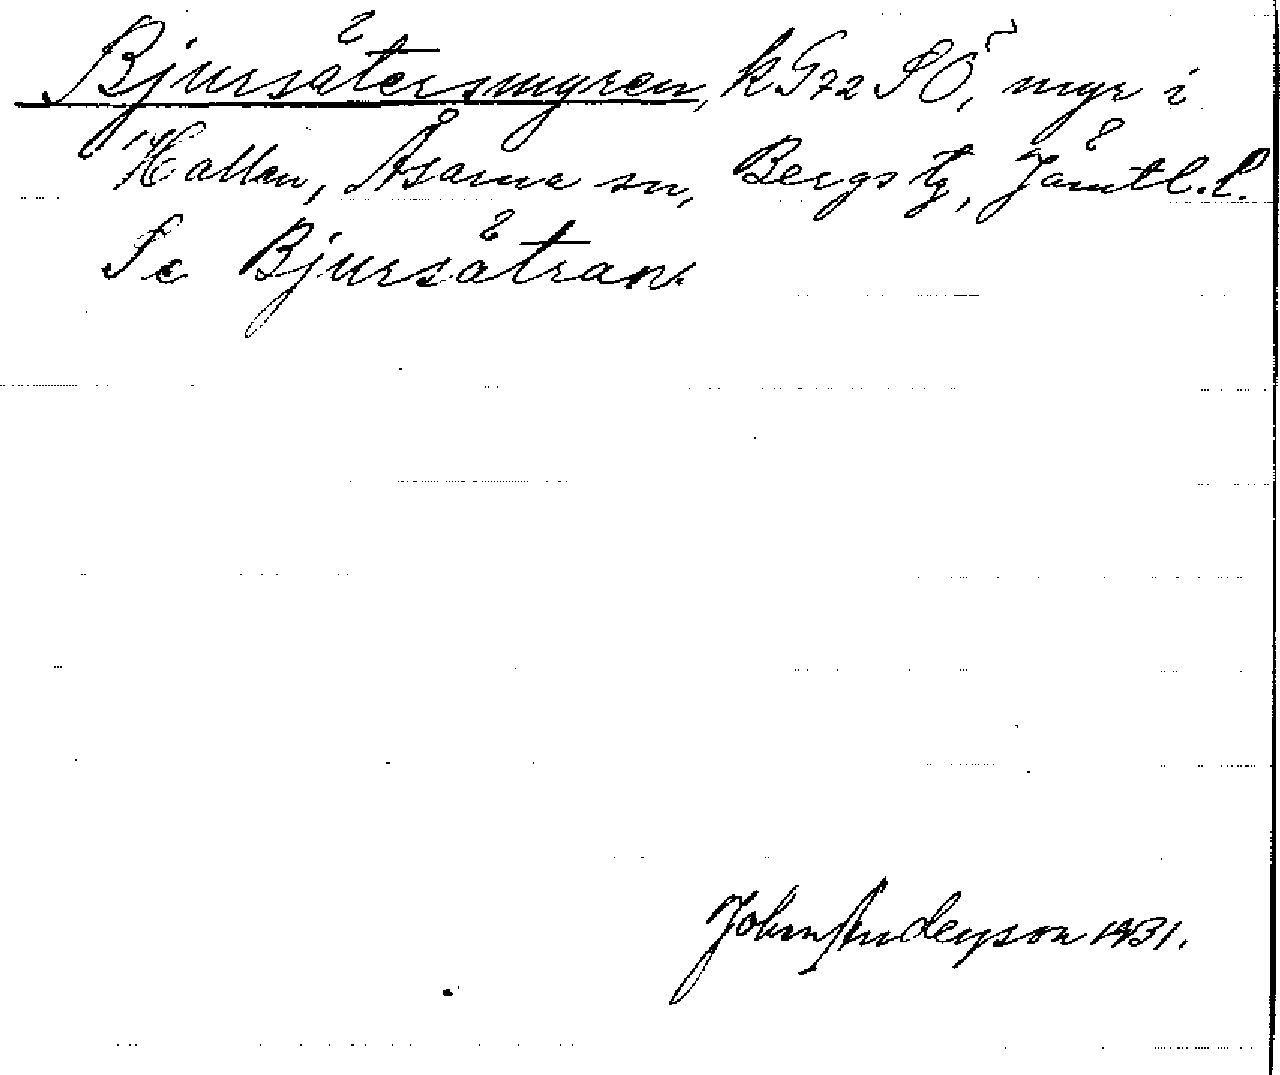 Bjursätersmyren, k G 72 SÖ, myr i
Hallen, Åsarna sn, Bergs tg, Jämtl. l.
Se Bjursätran.
John Anderson 1931.